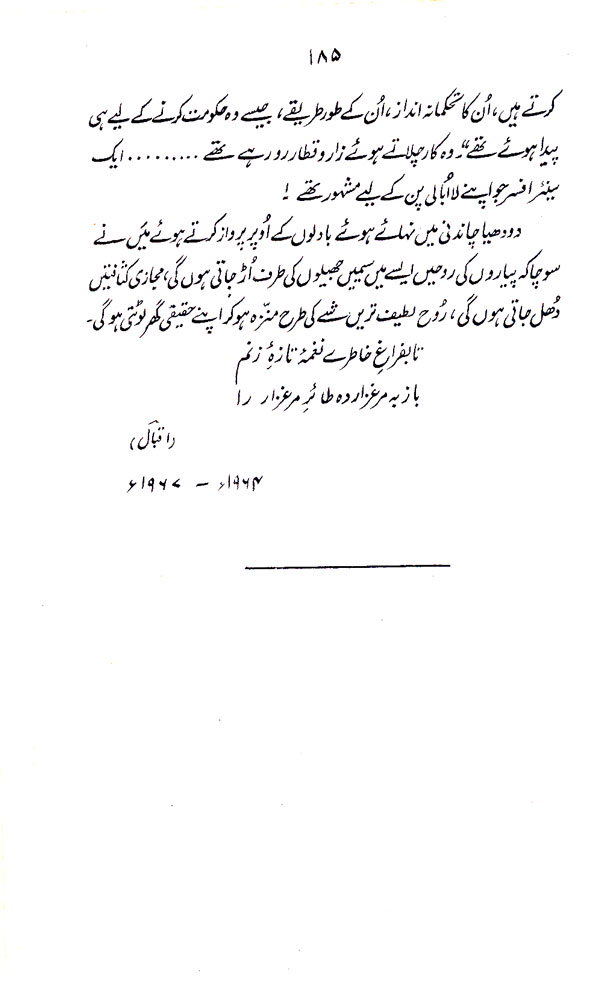 ۱۸۵
کرتے ہیں، اُن کا تحکمانہ انداز، اُن کے طور طریقے، جیسے وہ حکومت کرنے کے لیے ہی
پیدا ہوئے تھے“۔ وہ کار چلاتے ہوئے زار و قطار رو رہے تھے ......... ایک
سینئر افسر جو اپنے لااُبالی پن کے لیے مشہور تھے !
دودھیا چاندنی میں نہائے ہوئے بادلوں کے اُوپر پرواز کرتے ہوئے میں نے
سوچا کہ پیاروں کی روحیں ایسے میں سمیں جھیلوں کی طرف اُڑ جاتی ہوں گی، مجازی کثافتیں
دُھل جاتی ہوں گی، رُوح لطیف ترین شے کی طرح منزّہ ہو کر اپنے حقیقی گھر لوٹتی ہو گی۔
تا بفراغِ خاطرے نغمۂ تازۂ زنم
باز بہ مرغزار دہ طائرِ مرغزار را
(اقبالؔ)
۱۹۶۴ء – ۱۹۶۷ء